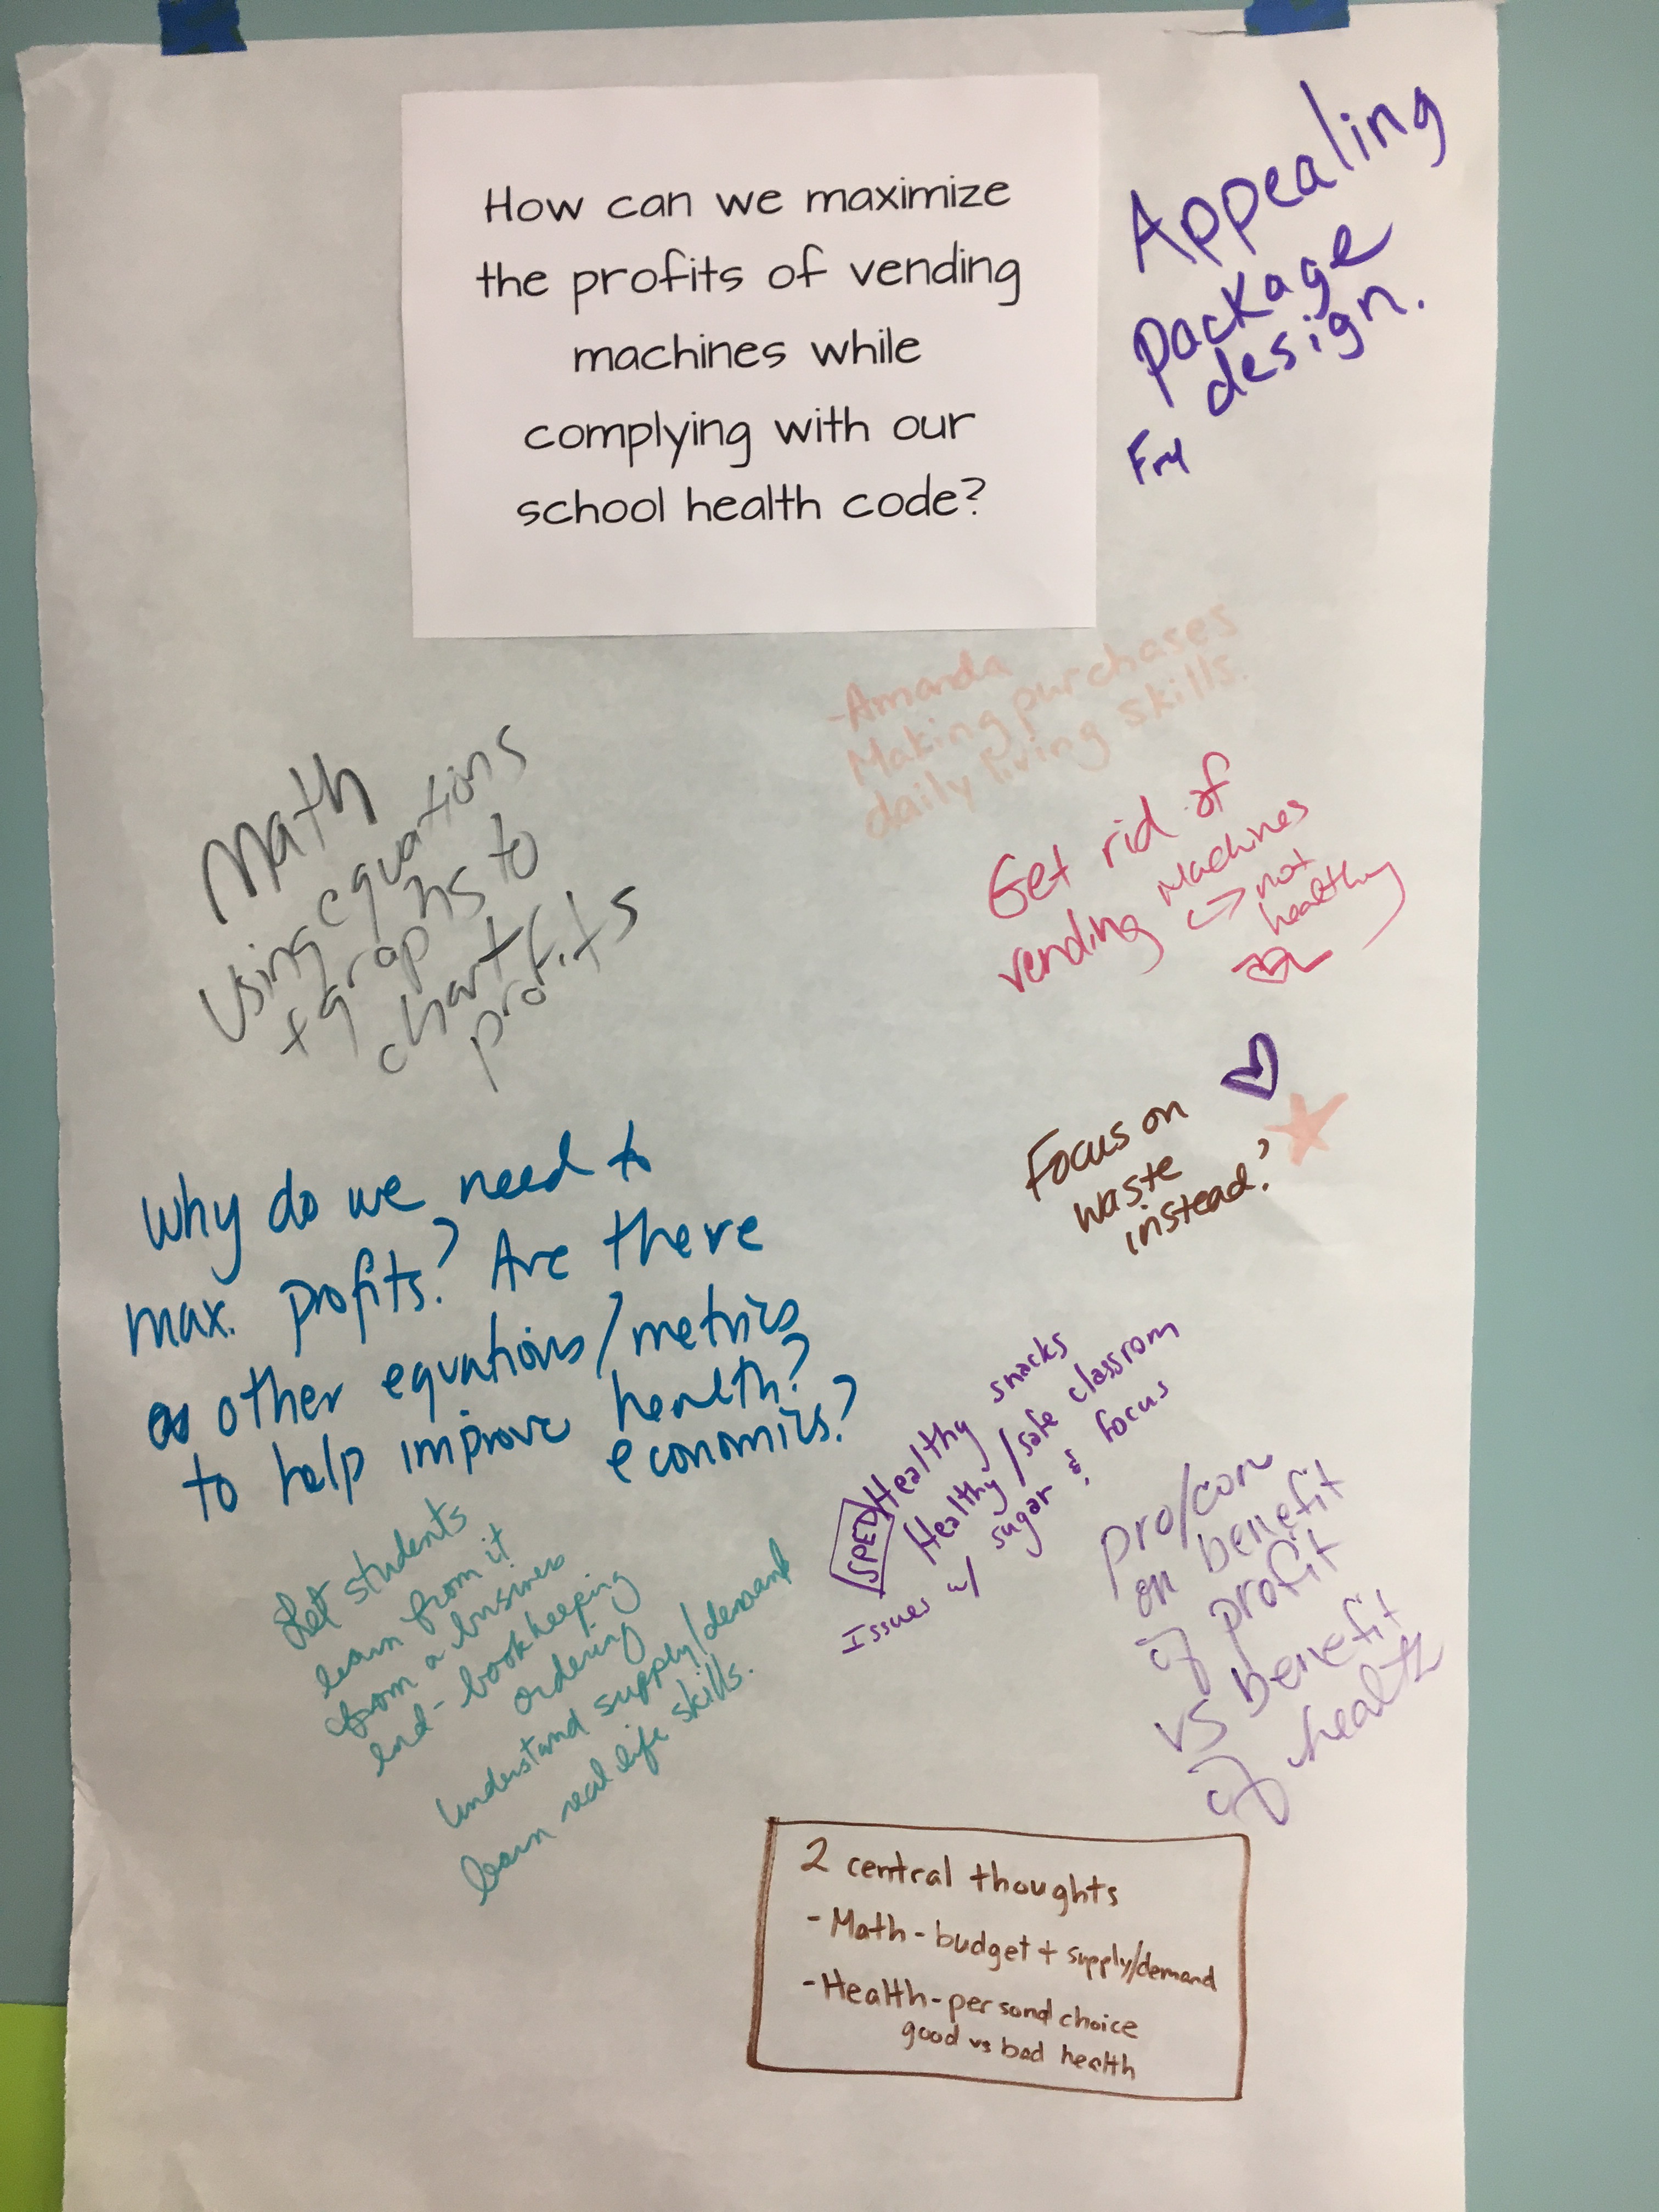 How can we maximize
the profits of vending
machines while
complying with our
school health code?
Appealing
package
design.
-Amanda
Making purchases
daily living skills.
Math
Using equations
+ graphs to
chart
profits
Get rid of
vending Machines
→ not
healthy
Focus on
waste
instead?
Why do we need to
max. profits? Are there
other equations/metrics
to help improve health?
economics?
SPED Healthy snacks
Healthy/safe classroom
Issues w/ sugar & focus
pro/con
on benefit
of profit
vs benefit
of health
Let students
learn from it
from a business
end - bookkeeping
ordering
understand supply/demand
learn real life skills.
2 central thoughts
- Math - budget + supply/demand
- Health - personal choice
good vs bad health